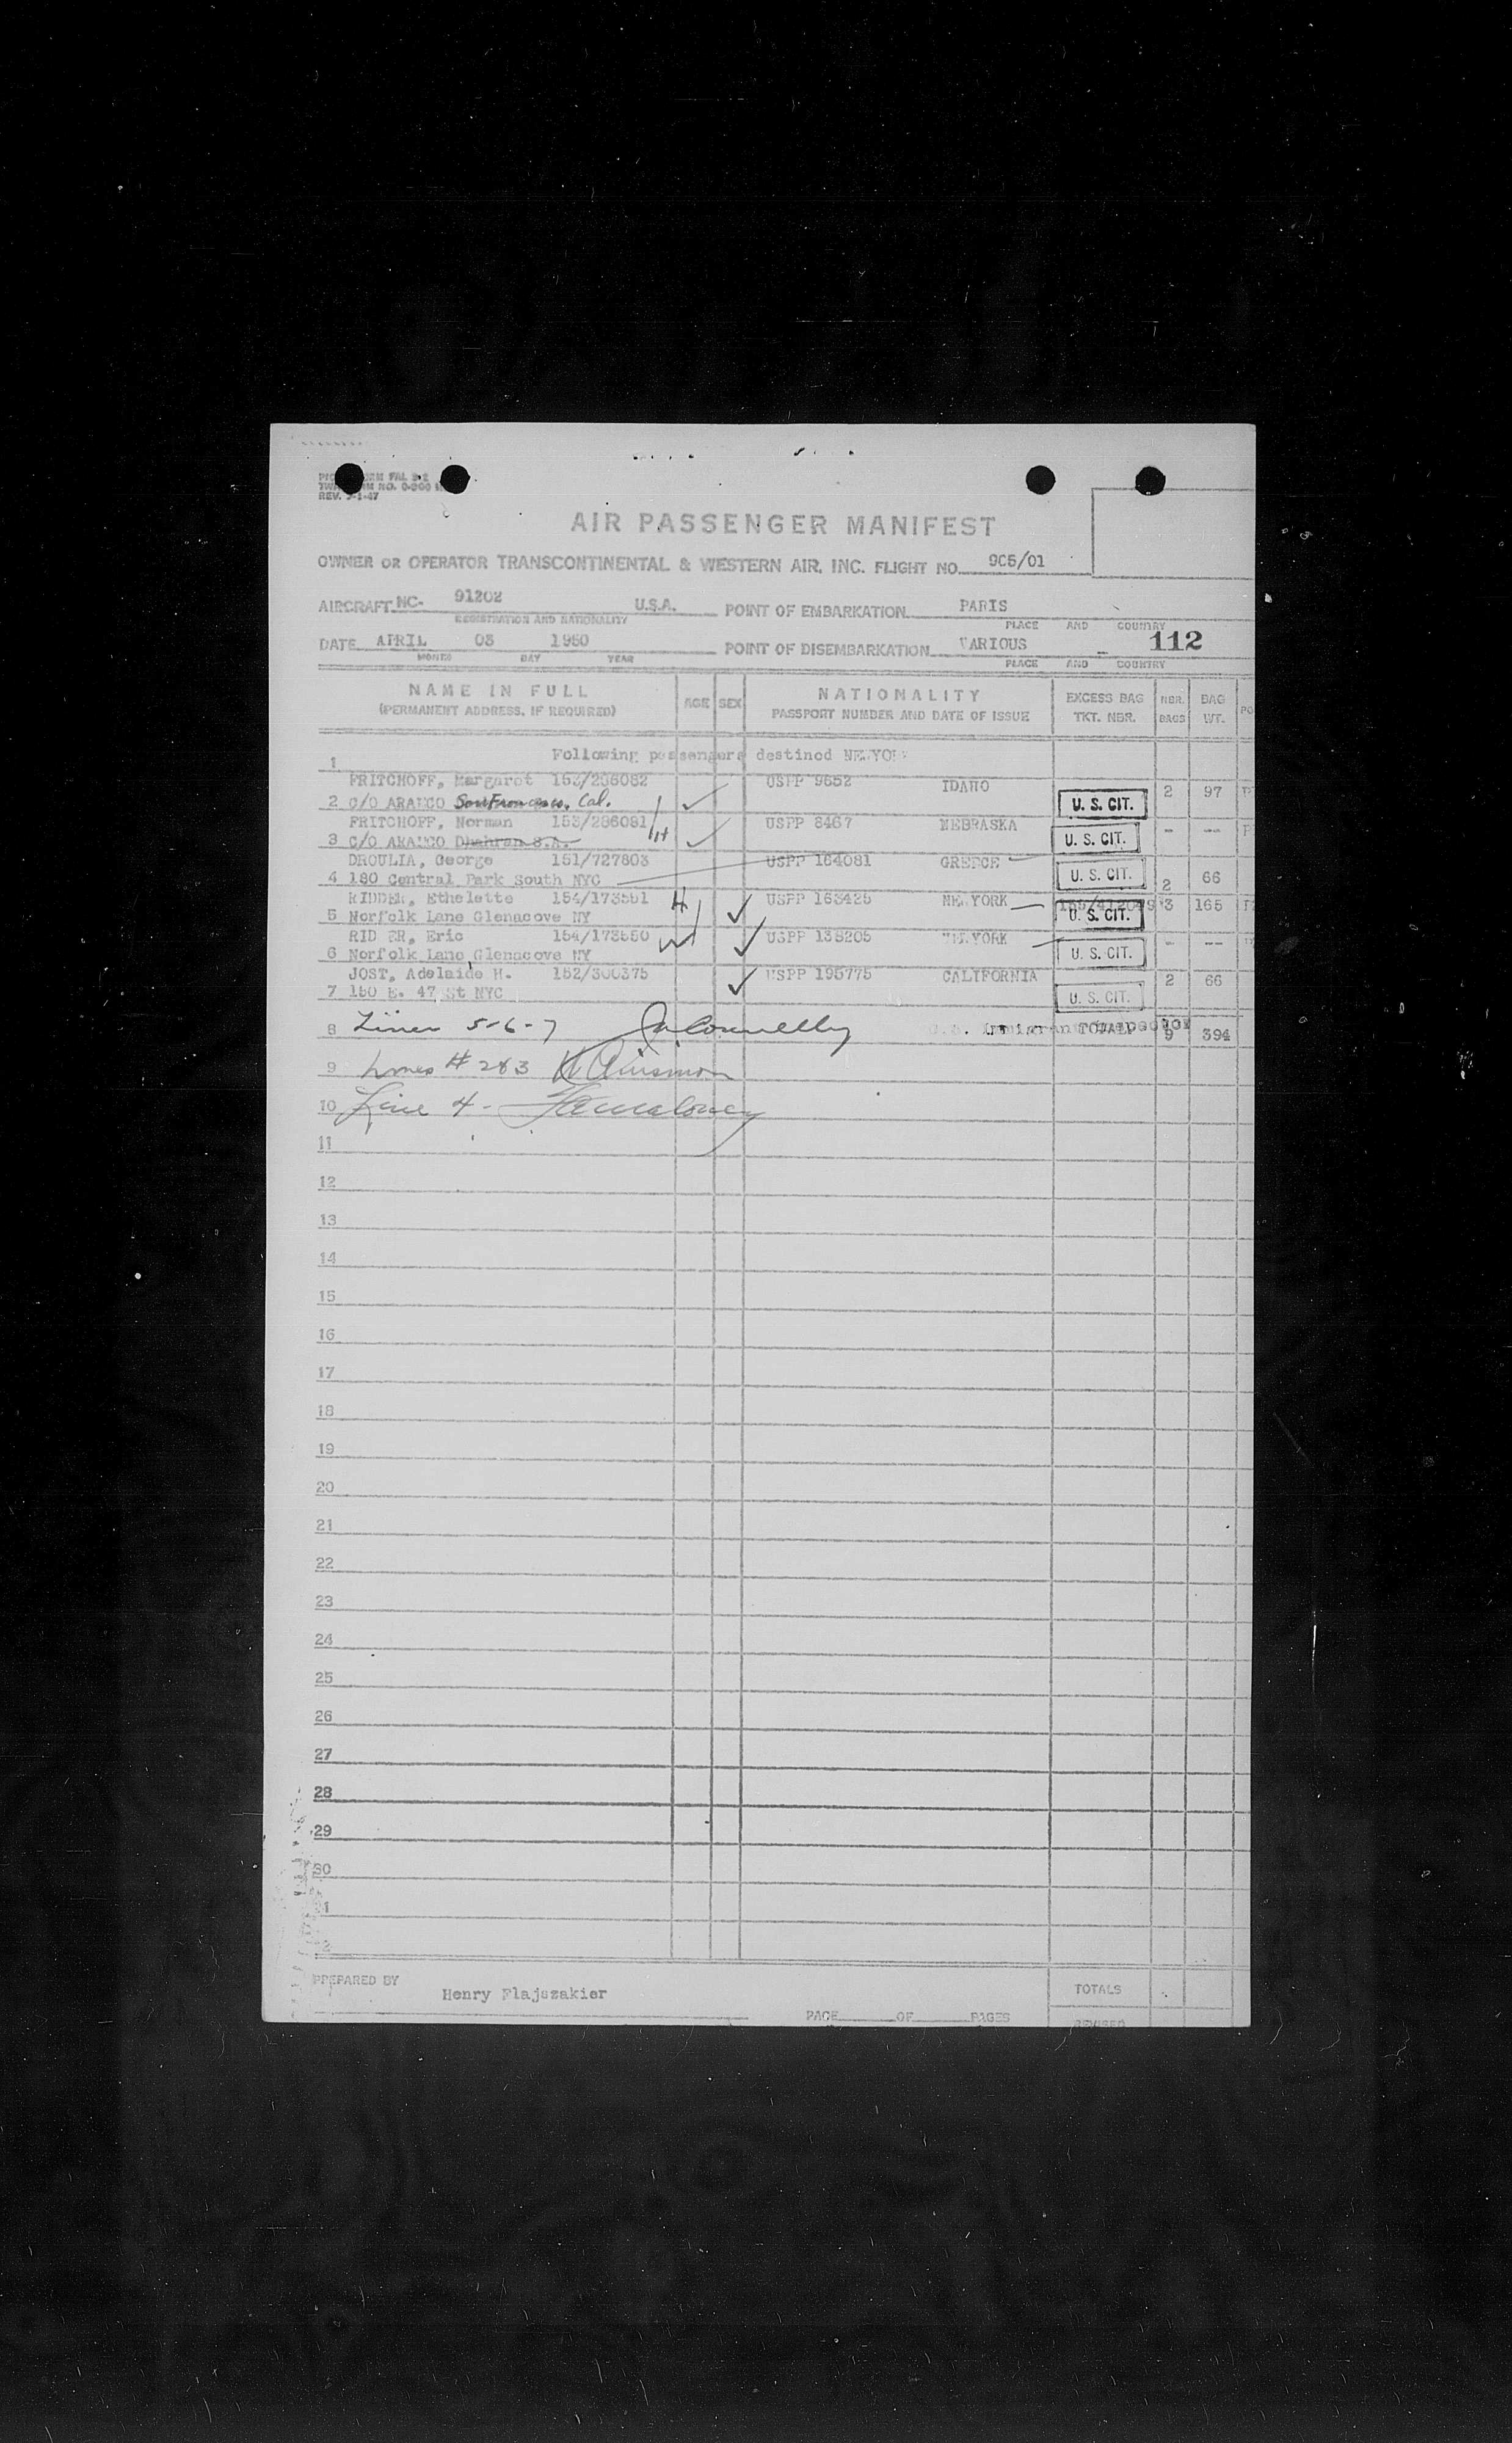 REV. 7-1-47
AIR PASSENGER MANIFEST
OWNER OR OPERATOR TRANSCONTINENTAL & WESTERN AIR, INC. FLIGHT NO. 905/01
AIRCRAFT NC- 91202 U.S.A. POINT OF EMBARKATION PARIS
REGISTRATION AND NATIONALITY PLACE AND COUNTRY
112
DATE APRIL 03 1950 POINT OF DISEMBARKATION VARIOUS -
MONTH DAY YEAR PLACE AND COUNTRY
NAME IN FULL AGE SEX NATIONALITY EXCESS BAG NBR. BAG
(PERMANENT ADDRESS, IF REQUIRED) PASSPORT NUMBER AND DATE OF ISSUE TKT. NBR. BAGS WT.
1 Following passengers destined NEWYORK
FRITCHOFF, Margaret 153/286082 USPP 9652 IDAHO 2 97
2 C/O ARAMCO San Francisco, Cal. U. S. CIT.
FRITCHOFF, Norman 153/286081 USPP 8467 NEBRASKA - --
3 C/O ARAMCO Dhahran S.A. U. S. CIT.
DROULIA, George 151/727803 USPP 164081 GREECE
4 180 Central Park South NYC U. S. CIT. 2 66
RIDDER, Ethelette 154/173551 USPP 163425 NEWYORK 3 165
5 Norfolk Lane Glenacove NY U. S. CIT.
RID ER, Eric 154/173550 USPP 138205 NEWYORK - --
6 Norfolk Lane Glenacove NY U. S. CIT.
JOST, Adelaide H. 152/300375 USPP 195775 CALIFORNIA 2 66
7 150 E. 47 St NYC U. S. CIT.
8 Lines 5-6-7 Connelly U.S. Immigrant Inspector TOTAL 9 394
9 Lines # 2&3
10 Line 4 - Maloney
11
12
13
14
15
16
17
18
19
20
21
22
23
24
25
26
27
28
29
30
PREPARED BY Henry Flajszakier TOTALS
PAGE OF PAGES REVISED